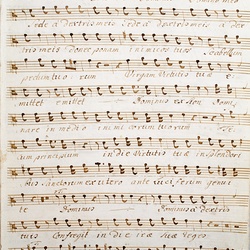 Sede a dextris meis Sede a dextris meis
tris meis donec ponam inimicos tuos Scabellum
pedum tuorum Virgam Virtutis tuae e
mittet emittet Dominus ex Sion Domi
nare in medio inimicorum tuorum Te
cum principium in die Virtutis tuae in splendori
bus sanctorum ex utero ante luciferum genui
te Dominus a dextris
tuis Confregit in die irae suae Reges